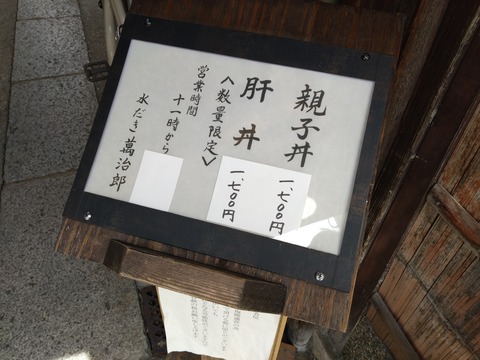 親子丼 一、七〇〇円
肝丼 一、七〇〇円
＜数量限定＞
営業時間
十一時から
水だき 萬治郎